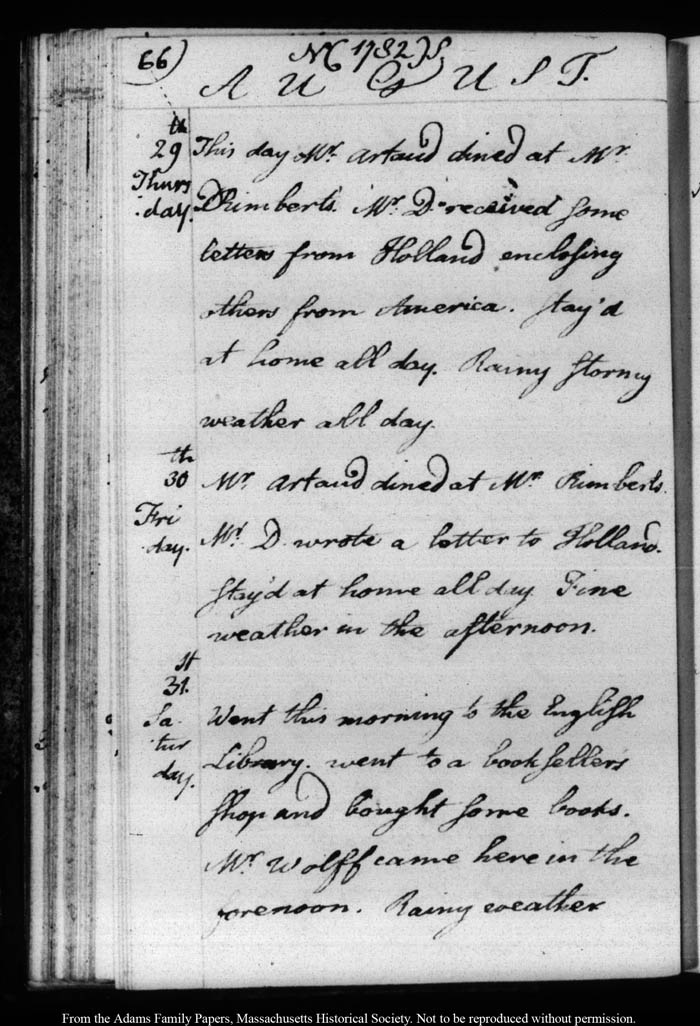 66) N(1782)S
A U G U S T.
29th Thursday. This day Mr. Artaud dined at Mr.
Rimberts. Mr. D. received some
letters from Holland enclosing
others from America. Stay'd
at home all day. Rainy stormy
weather all day.
30th Friday. Mr. Artaud dined at Mr. Rimberts.
Mr. D. wrote a letter to Holland.
Stay'd at home all day Fine
weather in the afternoon.
31st. Saturday. Went this morning to the English
Library. went to a booksellers
shop and bought some books.
Mr. Wolff came here in the
forenoon. Rainy weather
From the Adams Family Papers, Massachusetts Historical Society. Not to be reproduced without permission.